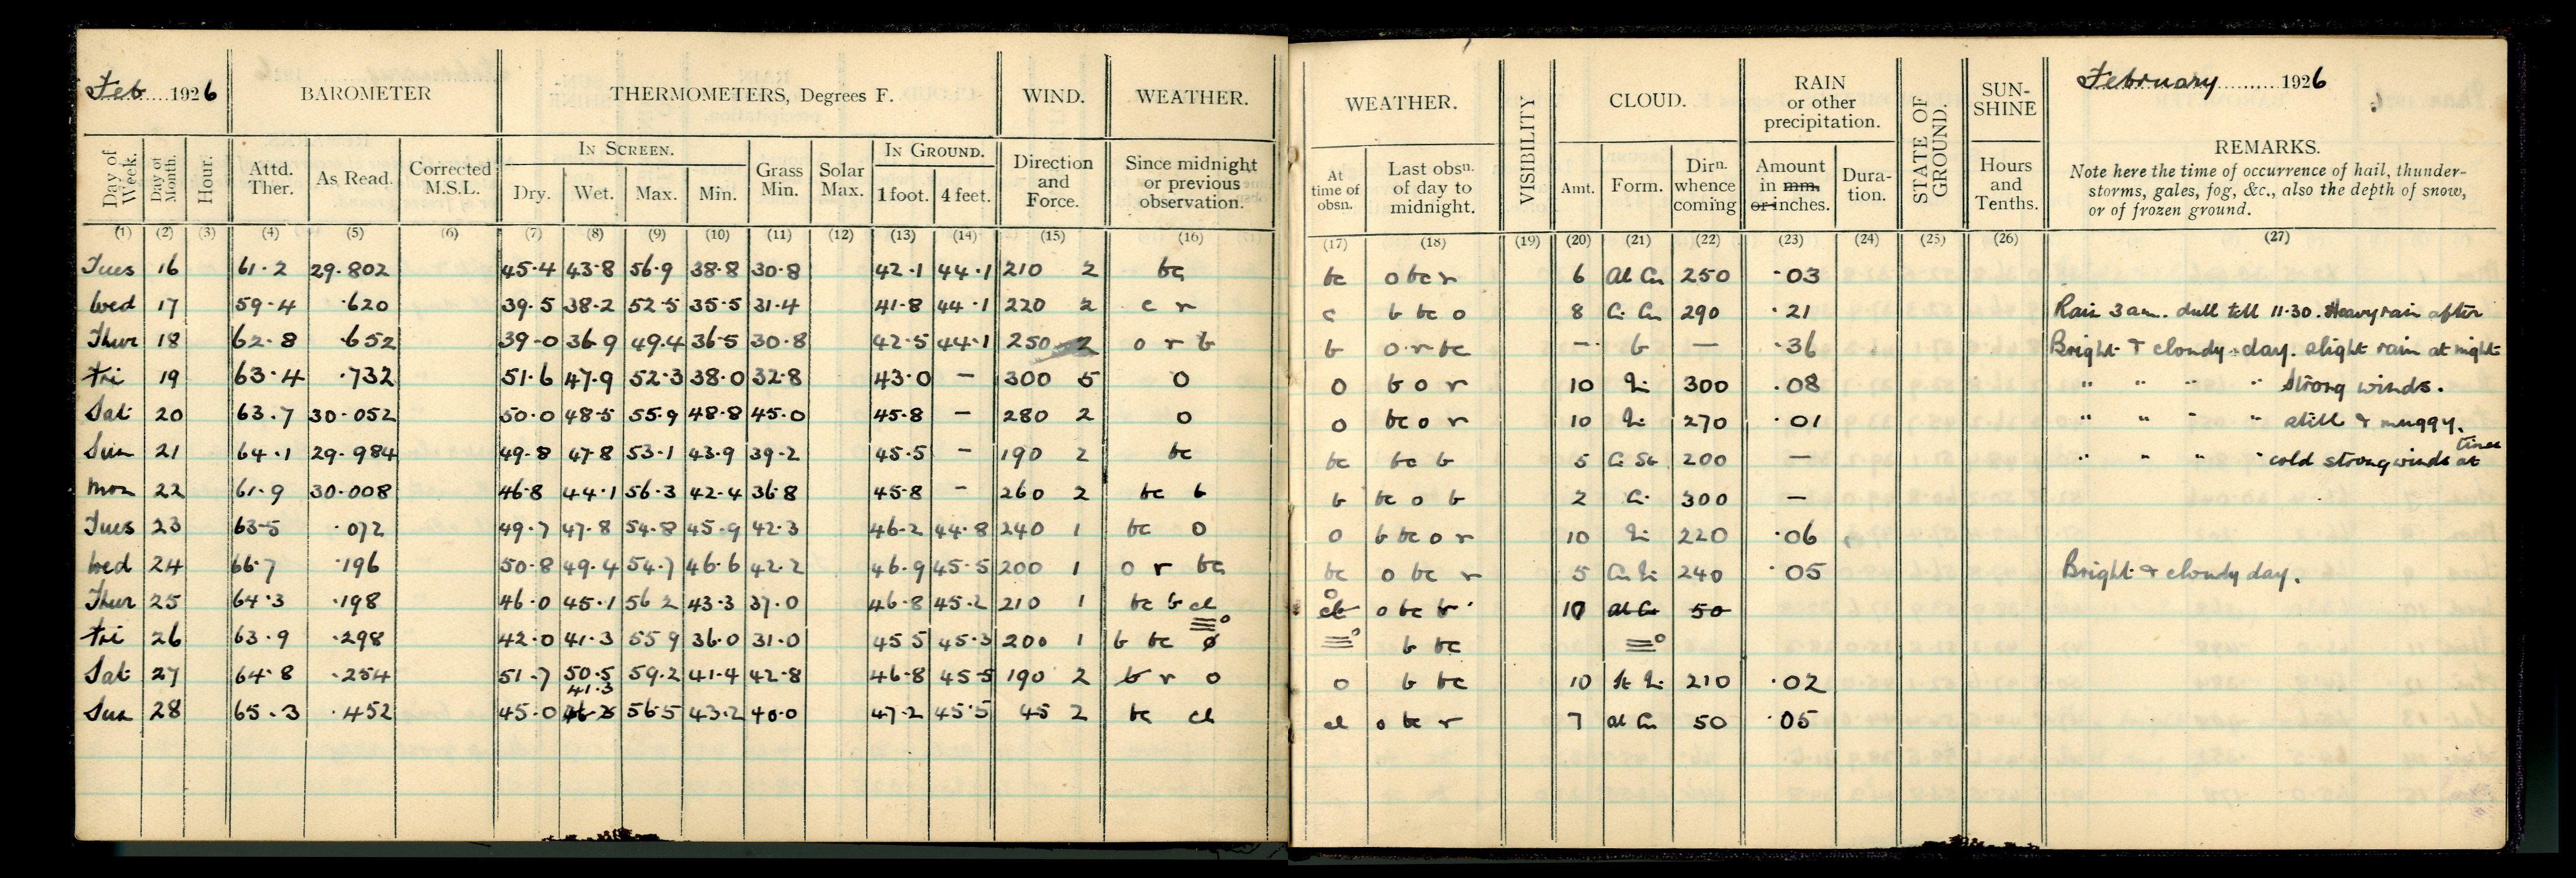 Feb 1926 BAROMETER THERMOMETERS, Degrees F. WIND. WEATHER.
Day of Week. Day of Month. Hour. Attd. Ther. As Read. Corrected M.S.L. IN SCREEN. Dry. Wet. Max. Min. Grass Min. Solar Max. IN GROUND. 1 foot. 4 feet. Direction and Force. Since midnight or previous observation.
(1) (2) (3) (4) (5) (6) (7) (8) (9) (10) (11) (12) (13) (14) (15) (16)
Tues 16 61.2 29.802 45.4 43.8 56.9 38.8 30.8 42.1 44.1 210 2 bc
Wed 17 59.4 .620 39.5 38.2 52.5 35.5 31.4 41.8 44.1 220 2 c r
Thur 18 62.8 .652 39.0 36.9 49.4 36.5 30.8 42.5 44.1 250 2 o r b
Fri 19 63.4 .732 51.6 47.9 52.3 38.0 32.8 43.0 – 300 5 o
Sat 20 63.7 30.052 50.0 48.5 55.9 48.8 45.0 45.8 – 280 2 o
Sun 21 64.1 29.984 49.8 47.8 53.1 43.9 39.2 45.5 – 190 2 bc
Mon 22 61.9 30.008 46.8 44.1 56.3 42.4 36.8 45.8 – 260 2 bc b
Tues 23 63.5 .072 49.7 47.8 54.8 45.9 42.3 46.2 44.8 240 1 bc o
Wed 24 66.7 .196 50.8 49.4 54.7 46.6 42.2 46.9 45.5 200 1 o r bc
Thur 25 64.3 .198 46.0 45.1 56.2 43.3 37.0 46.8 45.2 210 1 bc b
Fri 26 63.9 .298 42.0 41.3 55.9 36.0 31.0 45.5 45.3 200 1 b bc ≡°
Sat 27 64.8 .254 51.7 50.5 59.2 41.4 42.8 46.8 45.5 190 2 b r o
41.3
Sun 28 65.3 .452 45.0 56.5 43.2 40.0 47.2 45.5 45 2 bc
WEATHER. VISIBILITY CLOUD. RAIN or other precipitation. STATE OF GROUND. SUNSHINE February 1926
At time of obsn. Last obsn. of day to midnight. Amt. Form. Dirn. whence coming Amount in mm. or inches. Duration. Hours and Tenths. REMARKS.
Note here the time of occurrence of hail, thunder-
storms, gales, fog, &c., also the depth of snow,
or of frozen ground.
(17) (18) (19) (20) (21) (22) (23) (24) (25) (26) (27)
bc o bc r 6 Al Cu 250 .03
c b bc o 8 Ci Cu 290 .21 Rain 3 am. dull till 11.30. Heavy rain after
b o r bc – b – .36 Bright & cloudy day. slight rain at night
o b o r 10 300 .08 " " " " Strong winds.
o bc o r 10 270 .01 " " " " still & muggy.
bc bc b 5 Ci St 200 – " " " " cold strong winds at times
b bc o b 2 Ci 300 –
o b bc o r 10 220 .06
bc o bc r 5 240 .05 Bright & cloudy day.
o o bc b 10 Al Cu 50
≡° b bc ≡°
o b bc 10 210 .02
o bc r 7 Al Cu 50 .05